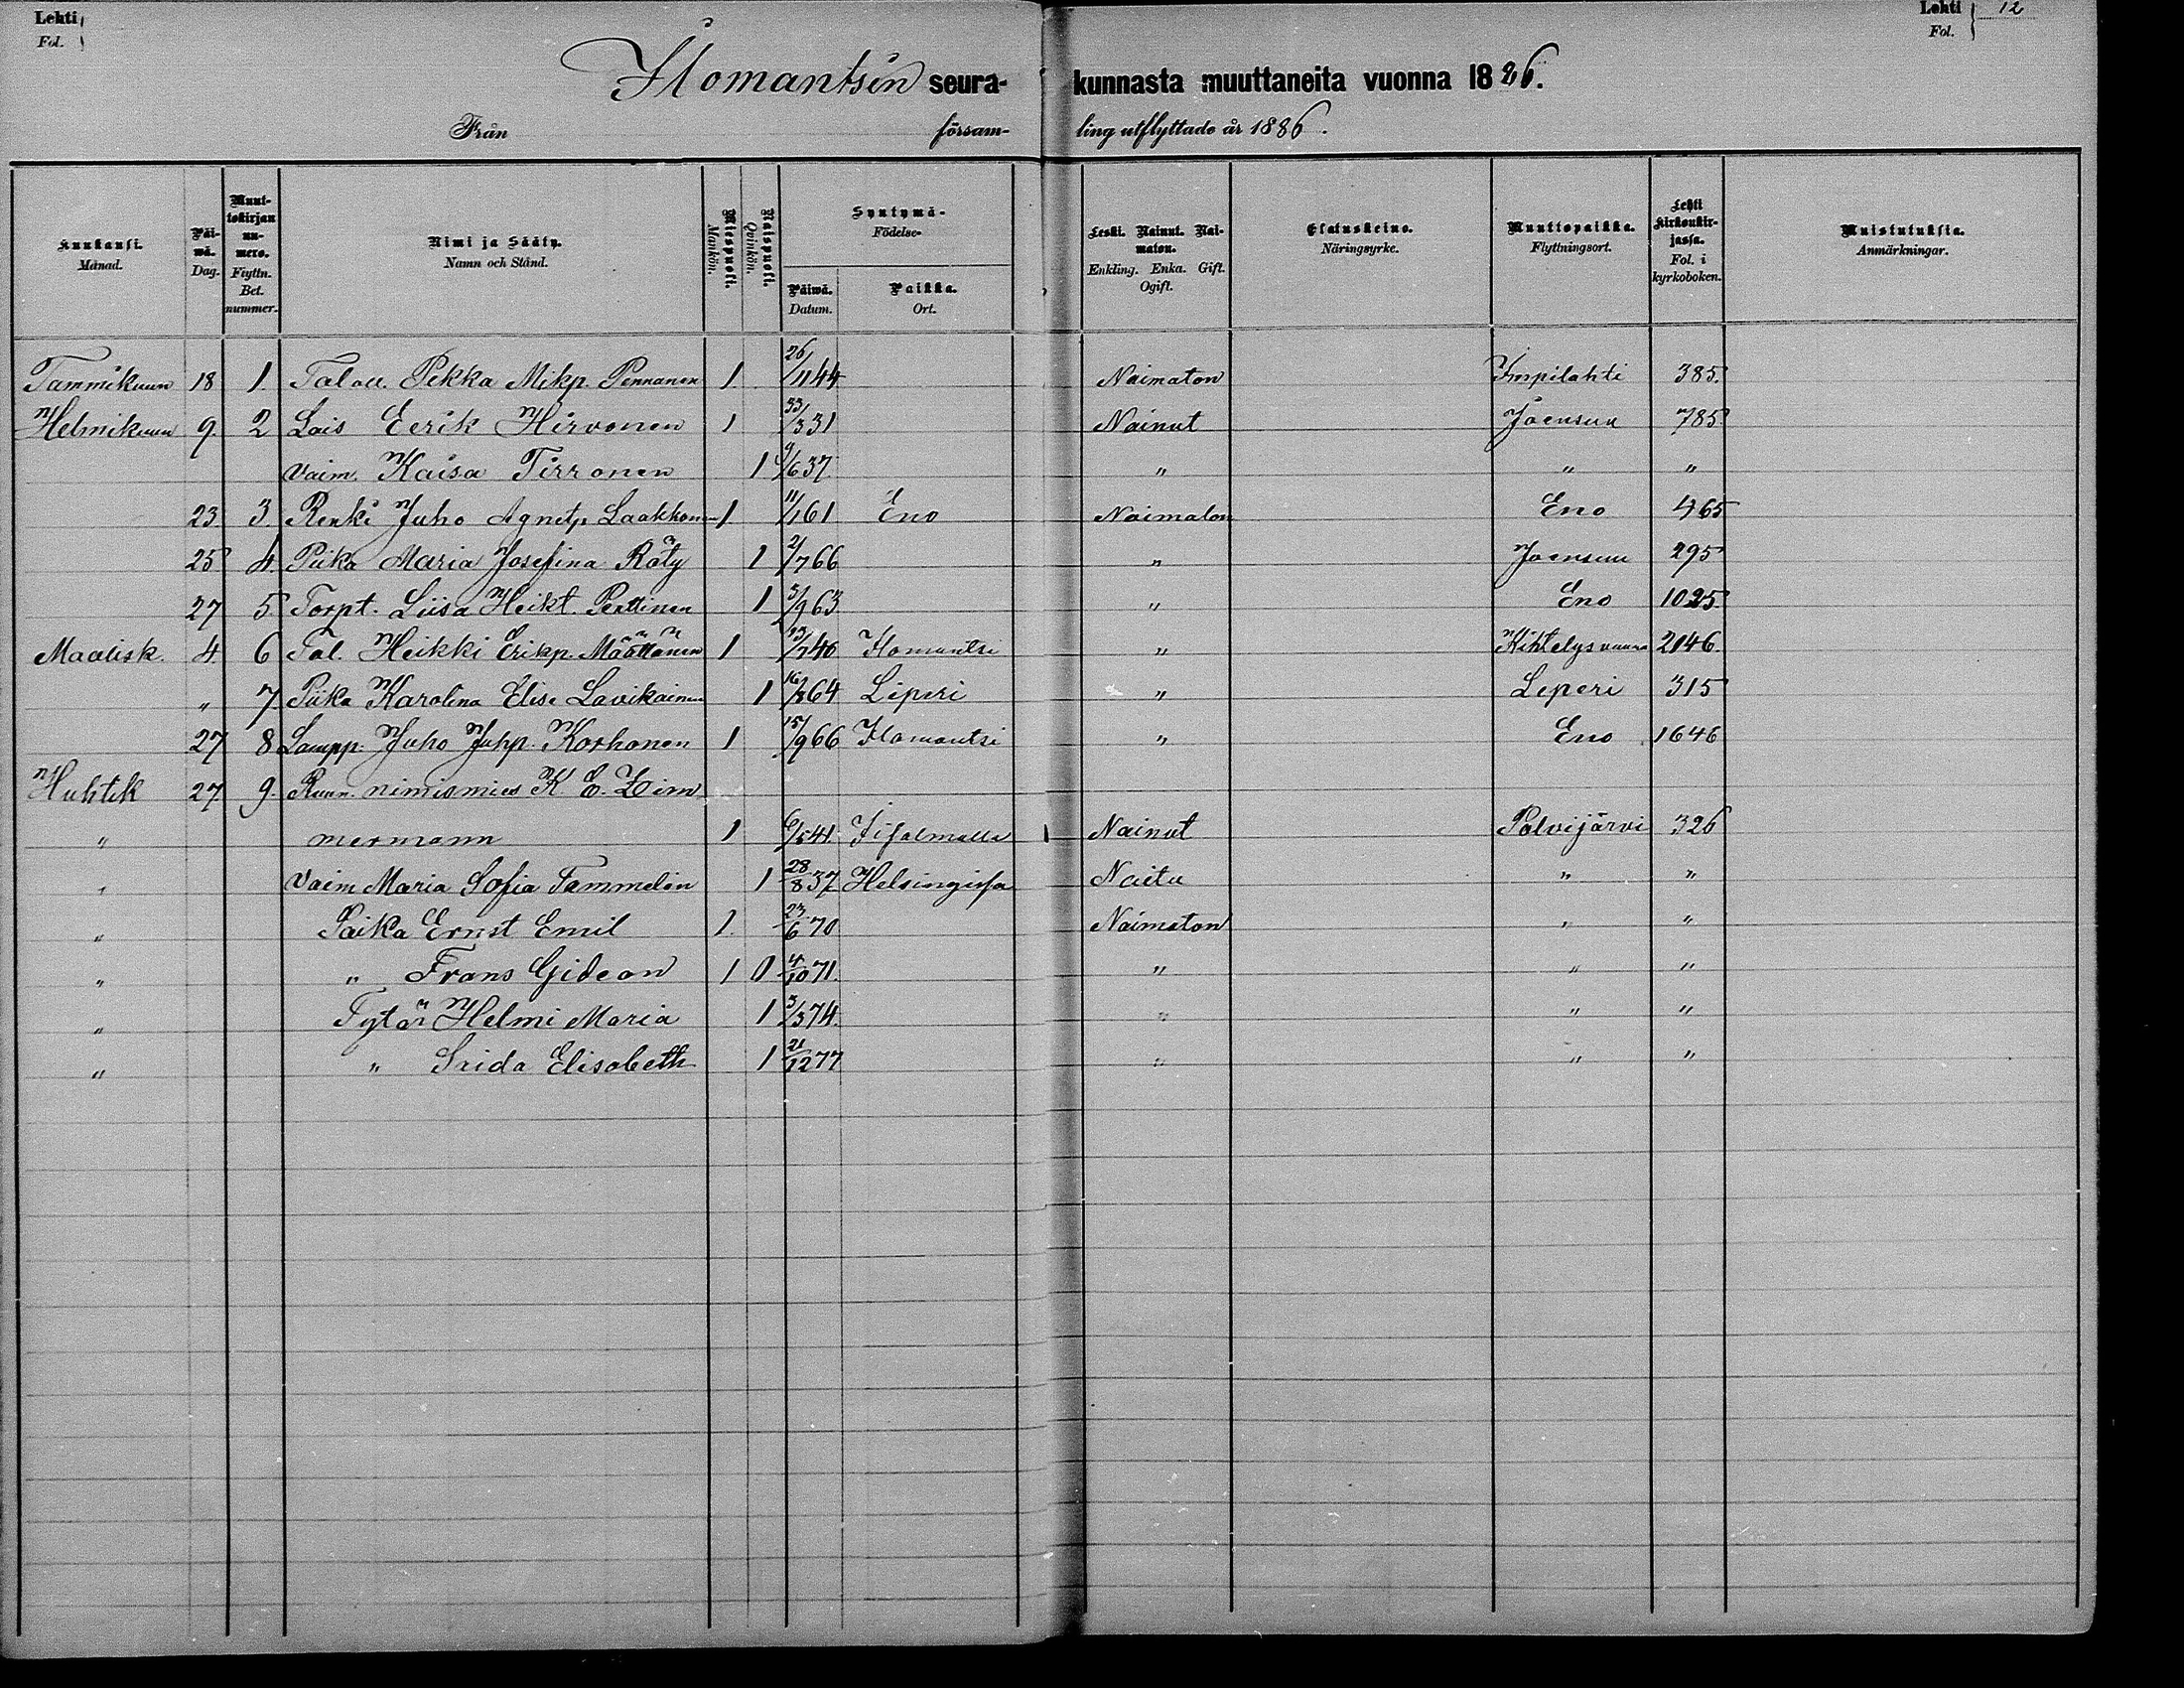 Lehti
Fol.
Lehti 12
Fol.
Ilomantsin seura- kunnasta muuttaneita vuonna 1886.
Från försam- ling utflyttade år 1886.
Kuukausi. Månad.
Päi-wä. Dag.
Muut-tokirjan nu-mero. Flyttn. Bet. nummer.
Nimi ja Sääty. Namn och Stånd.
Miespuoli. Mankön.
Naispuoli. Qvinkön.
Syntymä- Födelse-
Päiwä. Datum.
Paikka. Ort.
Leski. Nainut. Nai-maton. Enkling. Enka. Gift. Ogift.
Elatuskeino. Näringsyrke.
Muuttopaikka. Flyttningsort.
Lehti kirkonkir-jassa. Fol. i kyrkoboken.
Muistutuksia. Anmärkningar.
Tammikuun 18 1. Talou. Pekka Mikp. Pennanen 1 26/11 44 Naimaton Impilahti 385.
Helmikuun 9. 2 Lois Eerik Hirvonen 1 /3 31 Nainut Joensuu 785
Vaim. Kaisa Tirronen 1 9/6 37 " " "
23 3. Renki Juho Agnetp. Laakkonen 1 11/1 61 Eno Naimaton Eno 465
25 4. Piika Maria Josefina Räty 1 2/7 66 " Joensuu 295
27 5. Torpt. Liisa Heikt. Penttinen 1 3/9 63 " Eno 1025
Maalisk. 4. 6 Tal. Heikki Erikp. Määttänen 1 13/7 40 Ilomantsi " Kihtelysvaara 2146.
" 7 Piika Karolina Elise Lavikainen 1 16/8 64 Liperi " Leperi 315
27 8 Lampp. Juho Juhp. Korhonen 1 15/9 66 Ilomantsi " Eno 1646
Huhtik 27. 9. Ruun. nimismies K. E. Zim
" mermann 1 6/5 41. Iisalmella Nainut Polvijärvi 326
" Vaim Maria Sofia Tammelin 1 28/8 37 Helsingissa Naitu " "
" Poika Ernst Emil 1. 23/6 70 Naimaton " "
" " Frans Gideon 1 0 4/10 71. " " "
" Tytär Helmi Maria 1 3/3 74. " " "
" " Elisabeth 1 21/12 77 " " "